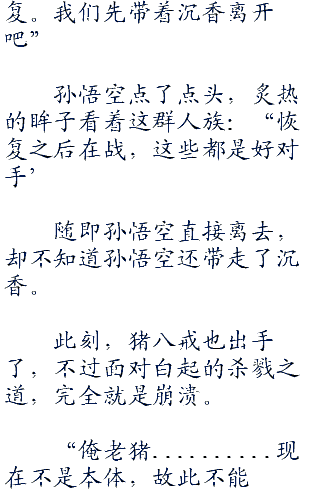 复。我们先带着沉香离开
吧”
孙悟空点了点头，炙热
的眸子看着这群人族：“恢
复之后在战，这些都是好对
手’
随即孙悟空直接离去，
却不知道孙悟空还带走了沉
香。
此刻，猪八戒也出手
了，不过面对白起的杀戮之
道，完全就是崩溃。
“俺老猪..........现
在不是本体，故此不能